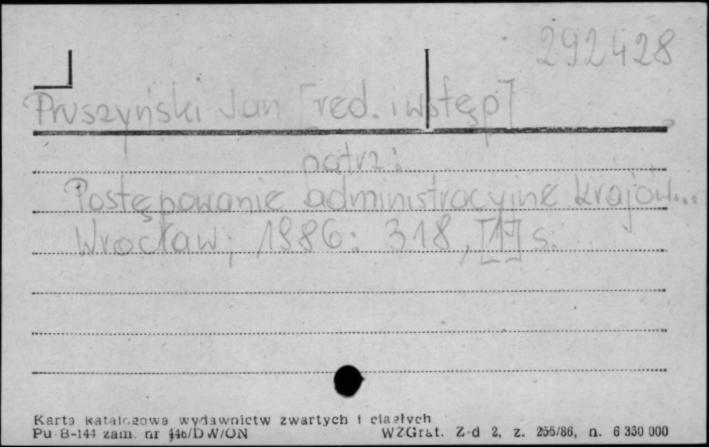 292428
Pruszyński Jan [red. i wstęp]
patrz:
Postępowanie administracyjne krajów...
Wrocław; 1986: 318, [1] s.
Karta katalogowa wydawnictw zwartych i ciągłych
Pu-B-144 zam. nr 446/DW/ON WZGraf. Z-d 2, z. 255/86, n. 6 350 000